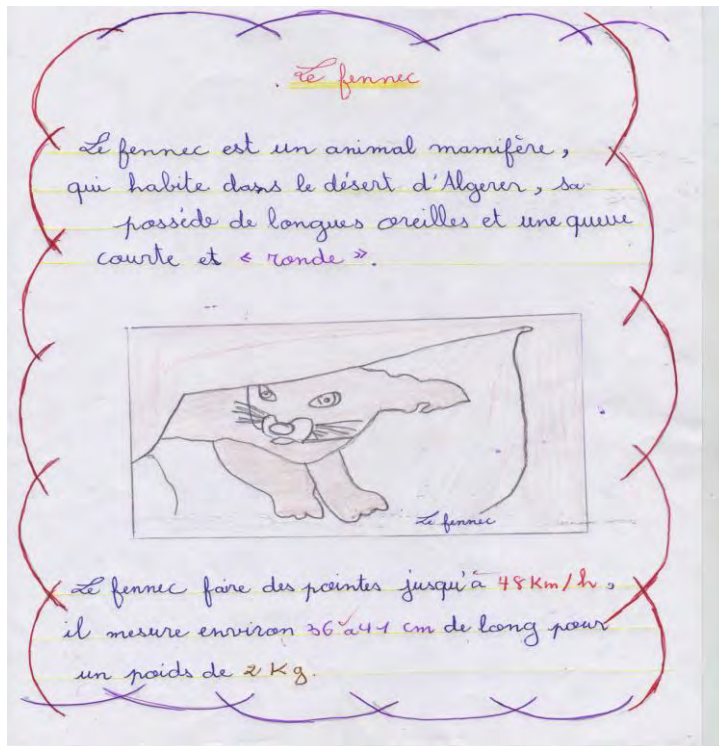 Le fennec
Le fennec est un animal mamifère,
qui habite dans le désert d'Algerer, sa
possède de longues oreilles et une queue
courte et « ronde ».
Le fennec
Le fennec faire des pointes jusqu'à 48 Km/h,
il mesure environ 36 à 41 cm de long pour
un poids de 2 Kg.